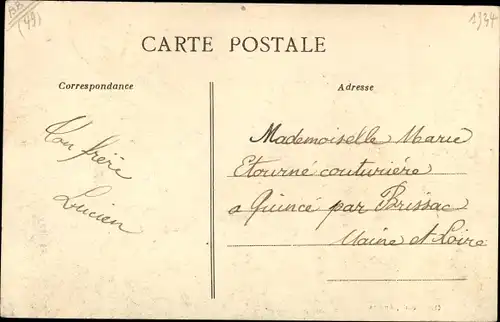 (49)
1334
CARTE POSTALE
Correspondance
Adresse
Ton frère
Lucien
Mademoiselle Marie
Etourné couturière
a Quincé par Brissac
Maine et Loire